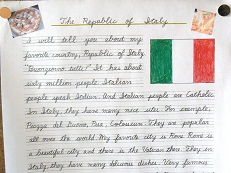 The Republic of Italy
I will tell you about my
favorite country, Republic of Italy.
"Buongiorno tutti!" It has about
sixty million people. Italian
people speak Italian. And Italian people are Catholic.
In Italy, they have many nice sites. For example,
Piazza del Duomo, Pisa, Colosseum. They are popular
all over the world. My favorite city is Rome. Rome is
a beautiful city and there is the Vatican there. They, in
Italy, they have many delicious dishes. Very famous